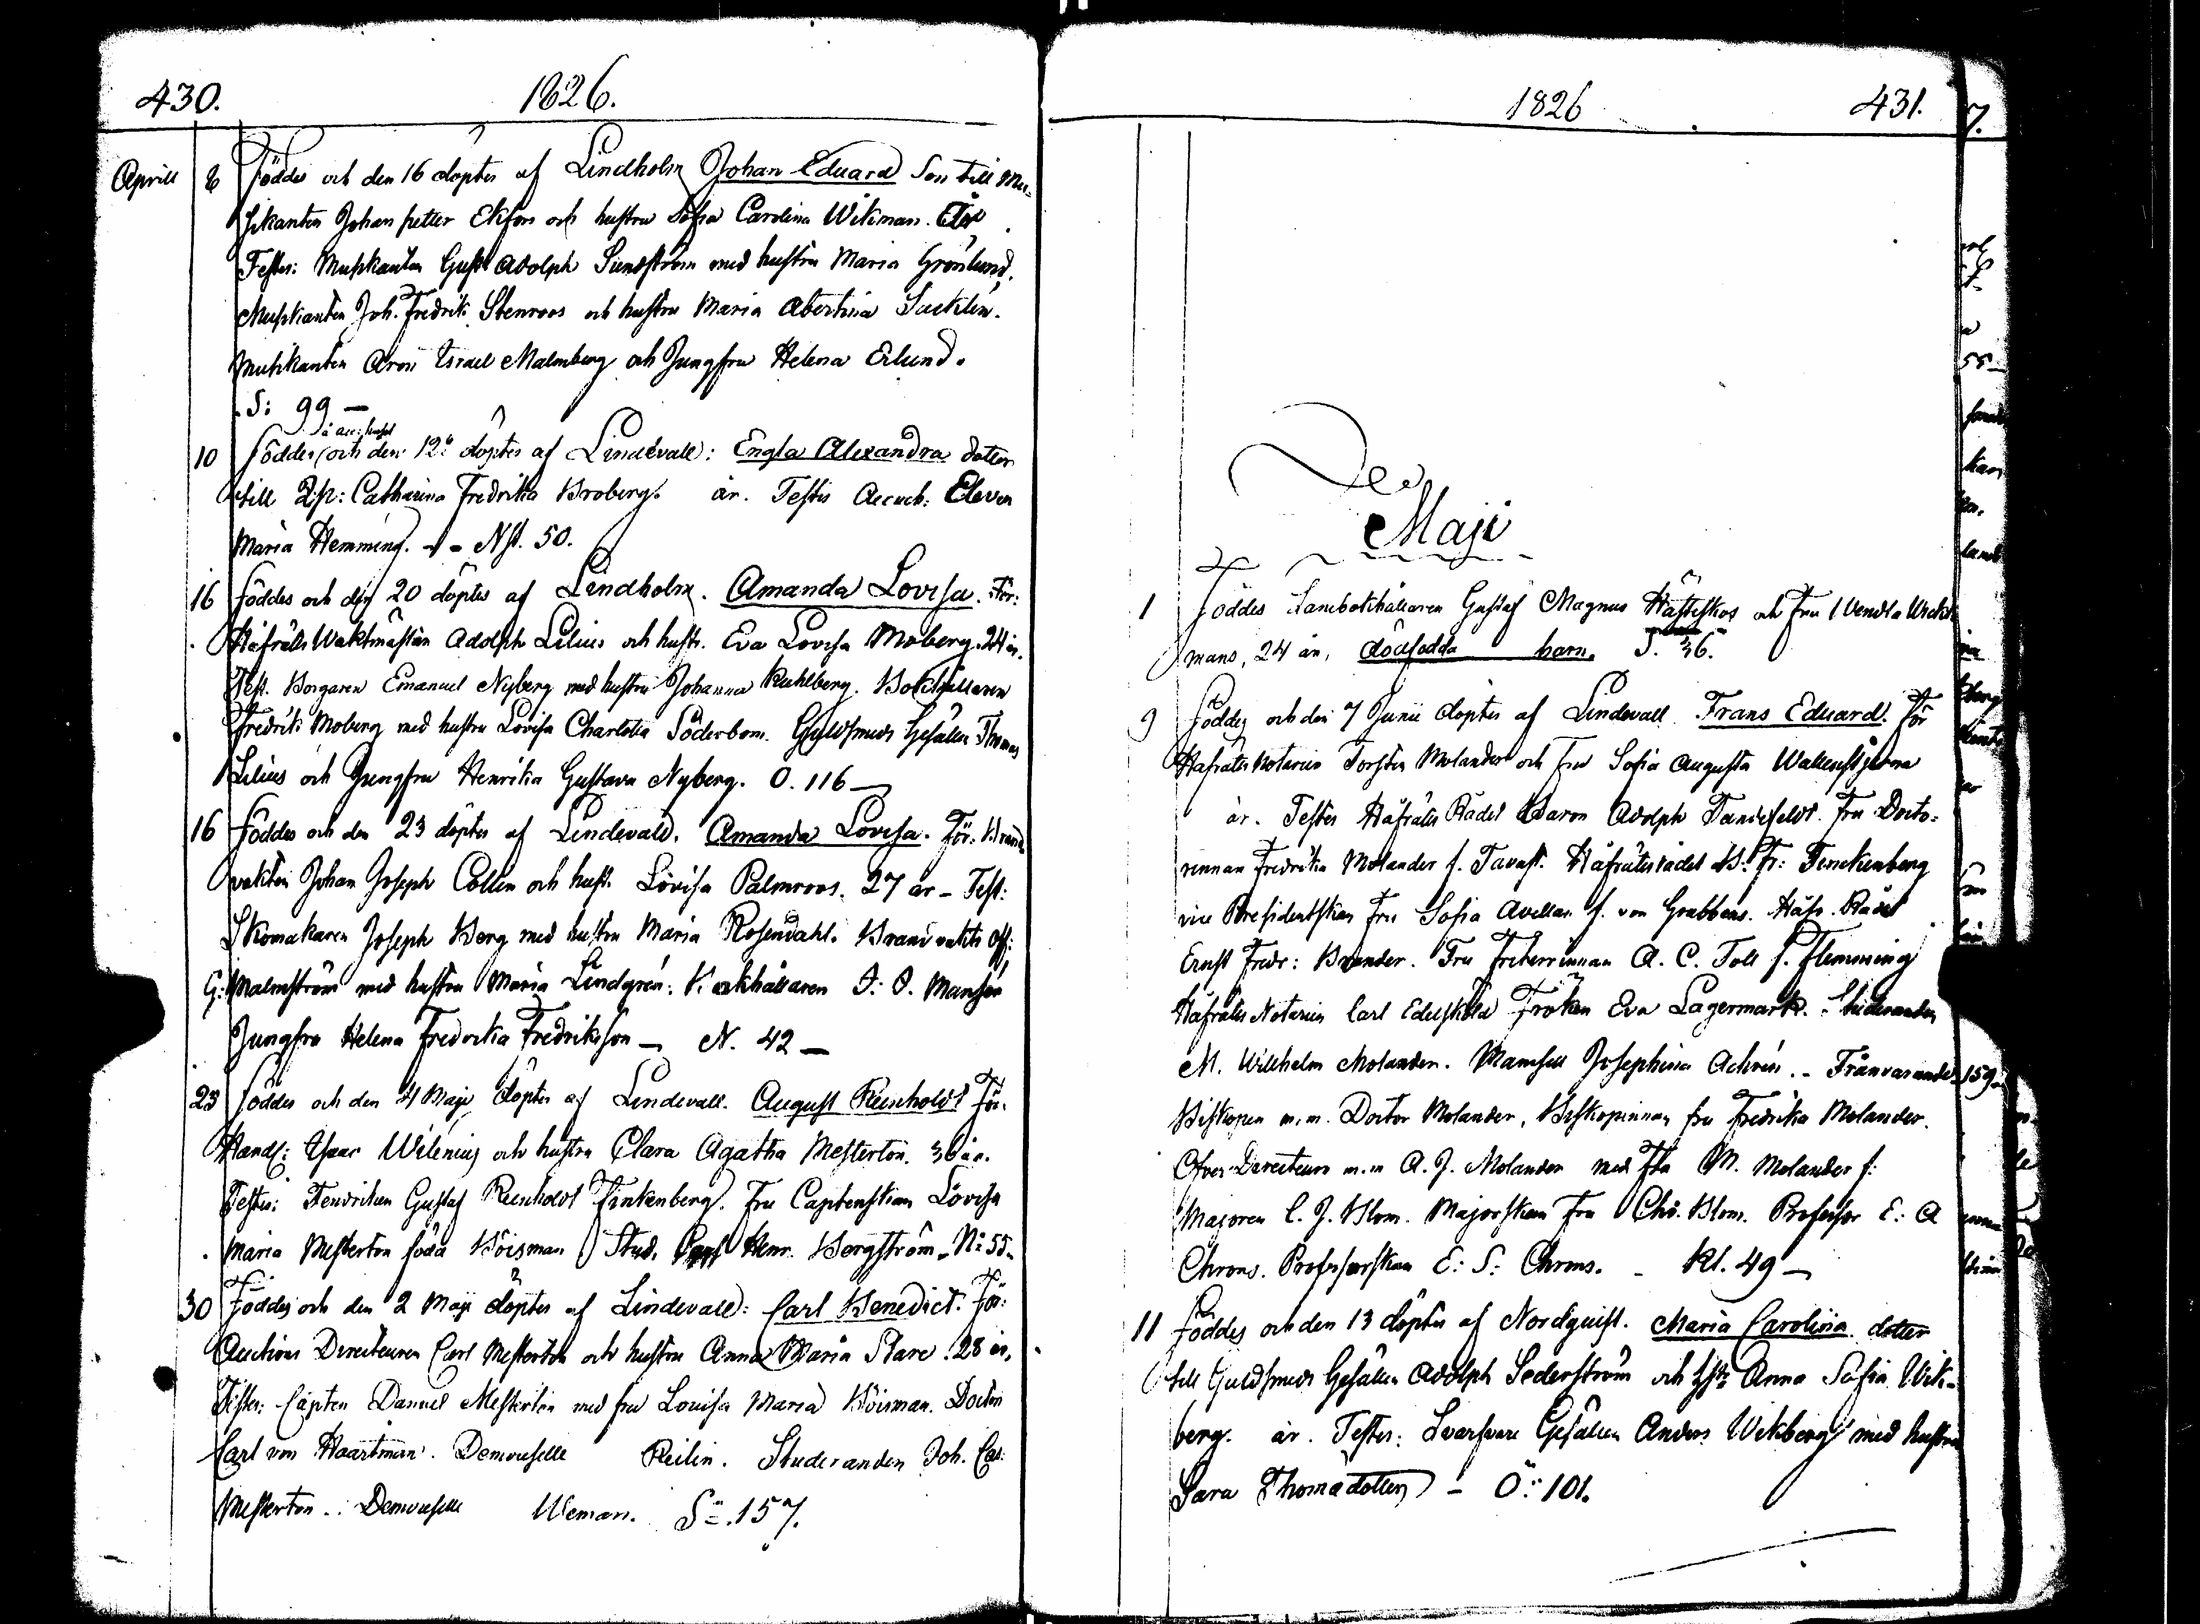 430. 1826.
Aprill 8 Föddes och den 16 döptes af Lindholm Johan Eduard Son till Mu-
sikanten Johan petter Ekfors och hustru Sofia Carolina Wikman.
Testes: Musikanten Gust Adolph Sundström med hustru Maria Grönlund.
Musikanten Joh. Fredrik Stenroos och hustru Maria Abertina Sacklén.
Musikanten Aron Israel Malmberg och Jungfru Helena Erlund.
S: 99 —
10 Föddes och den 12te döptes af Lindevall: Engla Alexandra dotter
till Catharina Fredrika Broberg. år. Testis Accuch: Eleven
Maria Hemming. - - N st. 50.
16 Föddes och den 20 döptes af Lindholm. Amanda Lovisa. För:
Håfrätts Waktmästarn Adolph Lilius och hustr. Eva Lovisa Moberg. 24 år.
Test. Borgaren Emanuel Nyberg med hustru Johanna Kuhlberg. Bokhållaren
Fredrik Moberg med hustru Lovisa Charlotta Söderbom. Guldsmeds Gesällen Thomas
Lilius och Jungfru Henrika Gustava Nyberg. O. 116 —
16 Föddes och den 23 döptes af Lindevall. Amanda Lovisa. För: Brand
vakten Johan Joseph Collin och hust. Lovisa Palmroos. 27 år - Test:
Skomakaren Joseph Berg med hustru Maria Rosendahl. Brandvakts Off:
G: Malmström med hustru Maria Lindgrén. Kiäkhållaren J: O. Mansén
Jungfru Helena Fredrika Fredriksson — N. 42 —
23 Föddes och den 4 Maji döptes af Lindevall. August Reinholdt För.
Handl: Isaac Wilenius och hustru Clara Agatha Mesterton. 36 år.
Testes: Fendriken Gustaf Reinholdt Finkenberg. Fru Captenskan Lovisa
Maria Mesterton föda Böisman Stud. Henr. Bergström - N: 55.
30 Föddes och den 2 Maji döptes af Lindevall: Carl Benedict. För:
Auctions Directeuren Carl Mesterton och hustru Anna Maria Stare. 28 år.
Testes: Capten Daniel Mesterton med fru Lovisa Maria Böisman. Doctor
Carl von Haartman. Demoiselle Reilin. Studeranden Joh. Cas:
Mesterton. Demoiselle Weman. S: 157.
1826 431.
Maji
1 Föddes Landbokhållaren Gustaf Magnus Hästeskos och Fru Wendla Wick-
mans, 24 år, dödfödda barn. S. 36.
9 Föddes och den 7 Junii döptes af Lindevall. Frans Eduard. För
Håfrätts Notarien Torsten Molander och Fru Sofia Augusta Wallenstjerna
år. Testes Håfrätts Rådet Baron Adolph Tandefeldt. Fru Docto-
rinnan Fredrika Molander f. Tavast. Håfrättsrådet B. Fr: Finckenberg
vice Presidentskan Fru Sofia Avellan f. von Grabbens. Håfr. Rådet
Ernst Fredr: Brander. Fru Friherrinnan A. C. Toll f. Flemming
Håfrätts Notarien Carl Edelsköld Fröken Eva Lagermark. Studeranden
M. Willhelm Molander. Mamsell Josephina Achrén. - Frånvarande
Biskopen m. m. Doctor Molander, Biskopinnan fru Fredrika Molander.
Öfver Directeuren m. m A. J. Molander med Fru M. Molander f:
Majoren C. J. Blom. Majorskan Fru Blom. Professor E: A
Chrons. Professorskan E: S: Chrons. - Kl. 49 —
11 Föddes och den 13 döptes af Nordquist. Maria Carolina dotter
till Guldsmeds Gesällen Adolph Sederström och hstr Anna Sofia Wik-
berg. år. Testes: Svarfvare Gesällen Anders Wikberg med hustru
Sara Thomædotter — Ö: 101.
7.
159